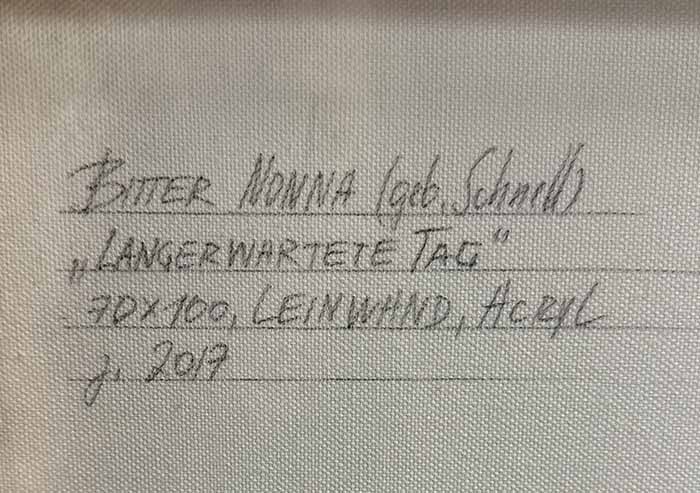 BITTER NONNA (geb. Schnell)
„LANGERWARTETE TAG“
70x100, LEINWAND, ACRYL
j. 2017